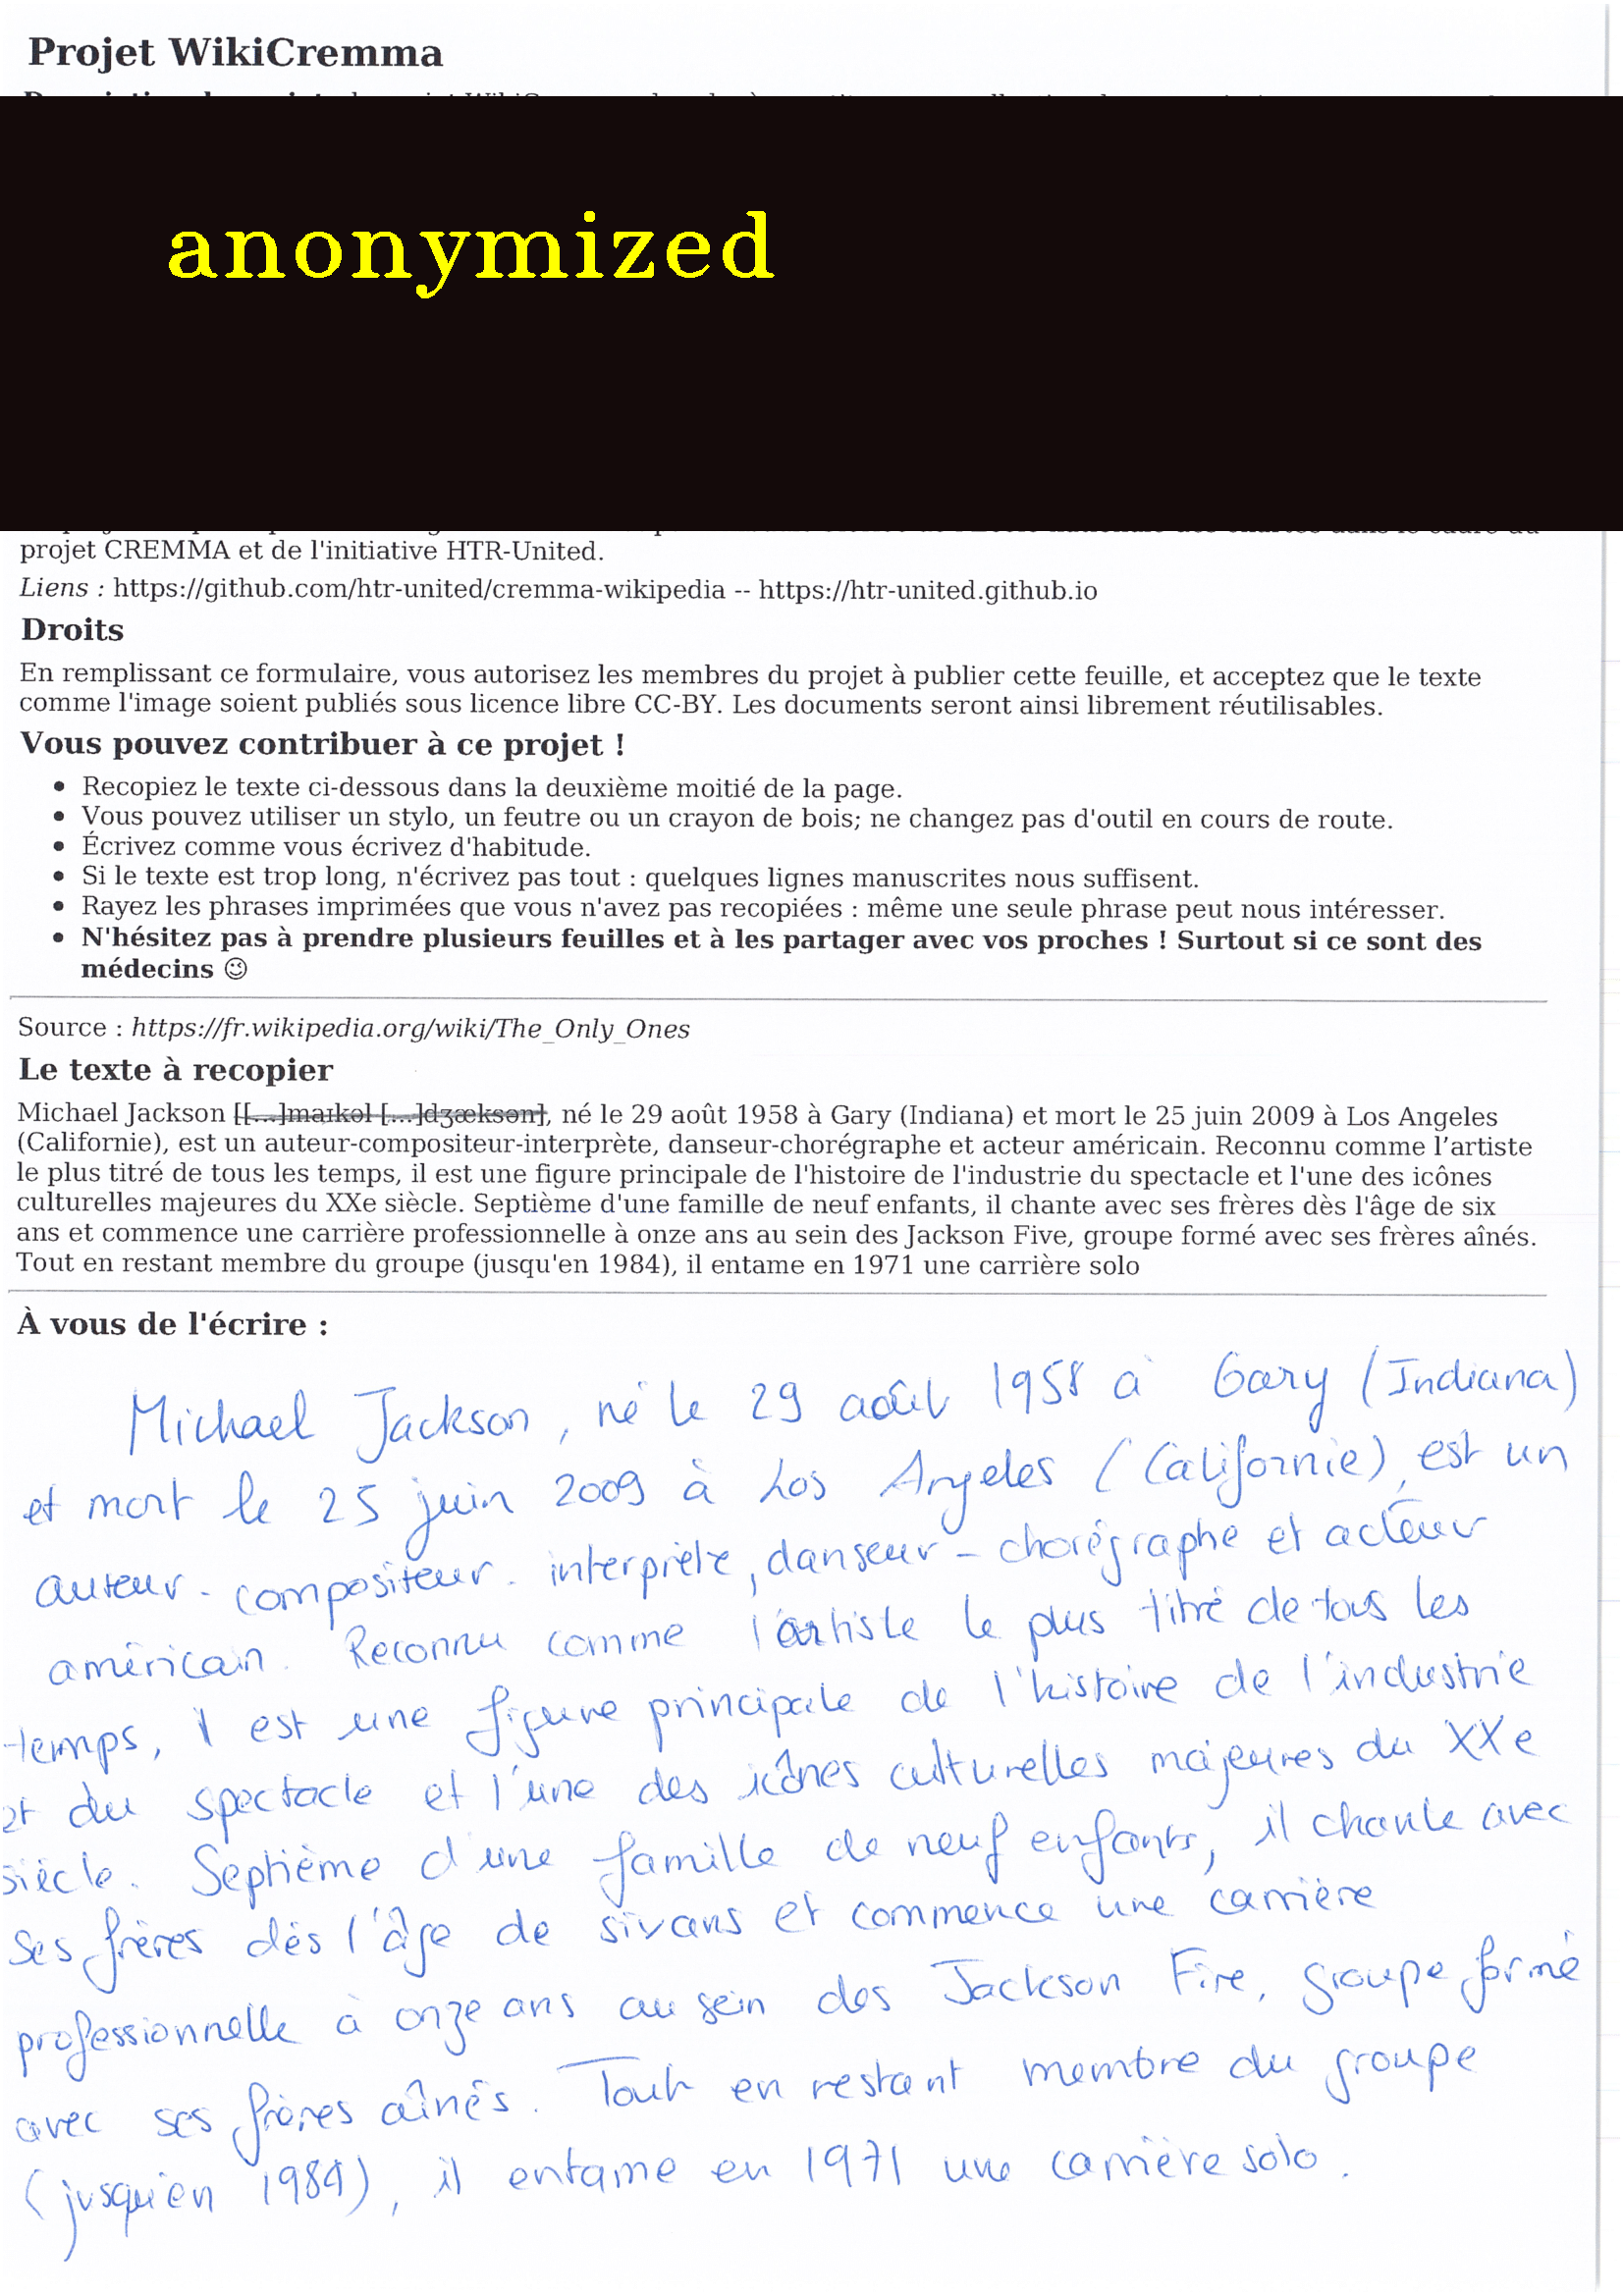 Projet WikiCremma
anonymized
projet CREMMA et de l'initiative HTR-United.
Liens : https://github.com/htr-united/cremma-wikipedia -- https://htr-united.github.io
Droits
En remplissant ce formulaire, vous autorisez les membres du projet à publier cette feuille, et acceptez que le texte
comme l'image soient publiés sous licence libre CC-BY. Les documents seront ainsi librement réutilisables.
Vous pouvez contribuer à ce projet !
• Recopiez le texte ci-dessous dans la deuxième moitié de la page.
• Vous pouvez utiliser un stylo, un feutre ou un crayon de bois; ne changez pas d'outil en cours de route.
• Écrivez comme vous écrivez d'habitude.
• Si le texte est trop long, n'écrivez pas tout : quelques lignes manuscrites nous suffisent.
• Rayez les phrases imprimées que vous n'avez pas recopiées : même une seule phrase peut nous intéresser.
• N'hésitez pas à prendre plusieurs feuilles et à les partager avec vos proches ! Surtout si ce sont des
médecins ☺
Source : https://fr.wikipedia.org/wiki/The_Only_Ones
Le texte à recopier
Michael Jackson [[...]maɪkəl [...]dʒæksən], né le 29 août 1958 à Gary (Indiana) et mort le 25 juin 2009 à Los Angeles
(Californie), est un auteur-compositeur-interprète, danseur-chorégraphe et acteur américain. Reconnu comme l’artiste
le plus titré de tous les temps, il est une figure principale de l'histoire de l'industrie du spectacle et l'une des icônes
culturelles majeures du XXe siècle. Septième d'une famille de neuf enfants, il chante avec ses frères dès l'âge de six
ans et commence une carrière professionnelle à onze ans au sein des Jackson Five, groupe formé avec ses frères aînés.
Tout en restant membre du groupe (jusqu'en 1984), il entame en 1971 une carrière solo
À vous de l'écrire :
Michael Jackson, né le 29 août 1958 à Gary (Indiana)
et mort le 25 juin 2009 à Los Angeles (Californie), est un
auteur-compositeur-interprète, danseur-chorégraphe et acteur
américain. Reconnu comme l'artiste le plus titré de tous les
temps, il est une figure principale de l'histoire de l'industrie
et du spectacle et l'une des icônes culturelles majeures du XXe
siècle. Septième d'une famille de neuf enfants, il chante avec
ses frères dès l'âge de six ans et commence une carrière
professionnelle à onze ans au sein des Jackson Five, groupe formé
avec ses frères aînés. Tout en restant membre du groupe
(jusqu'en 1984), il entame en 1971 une carrière solo.